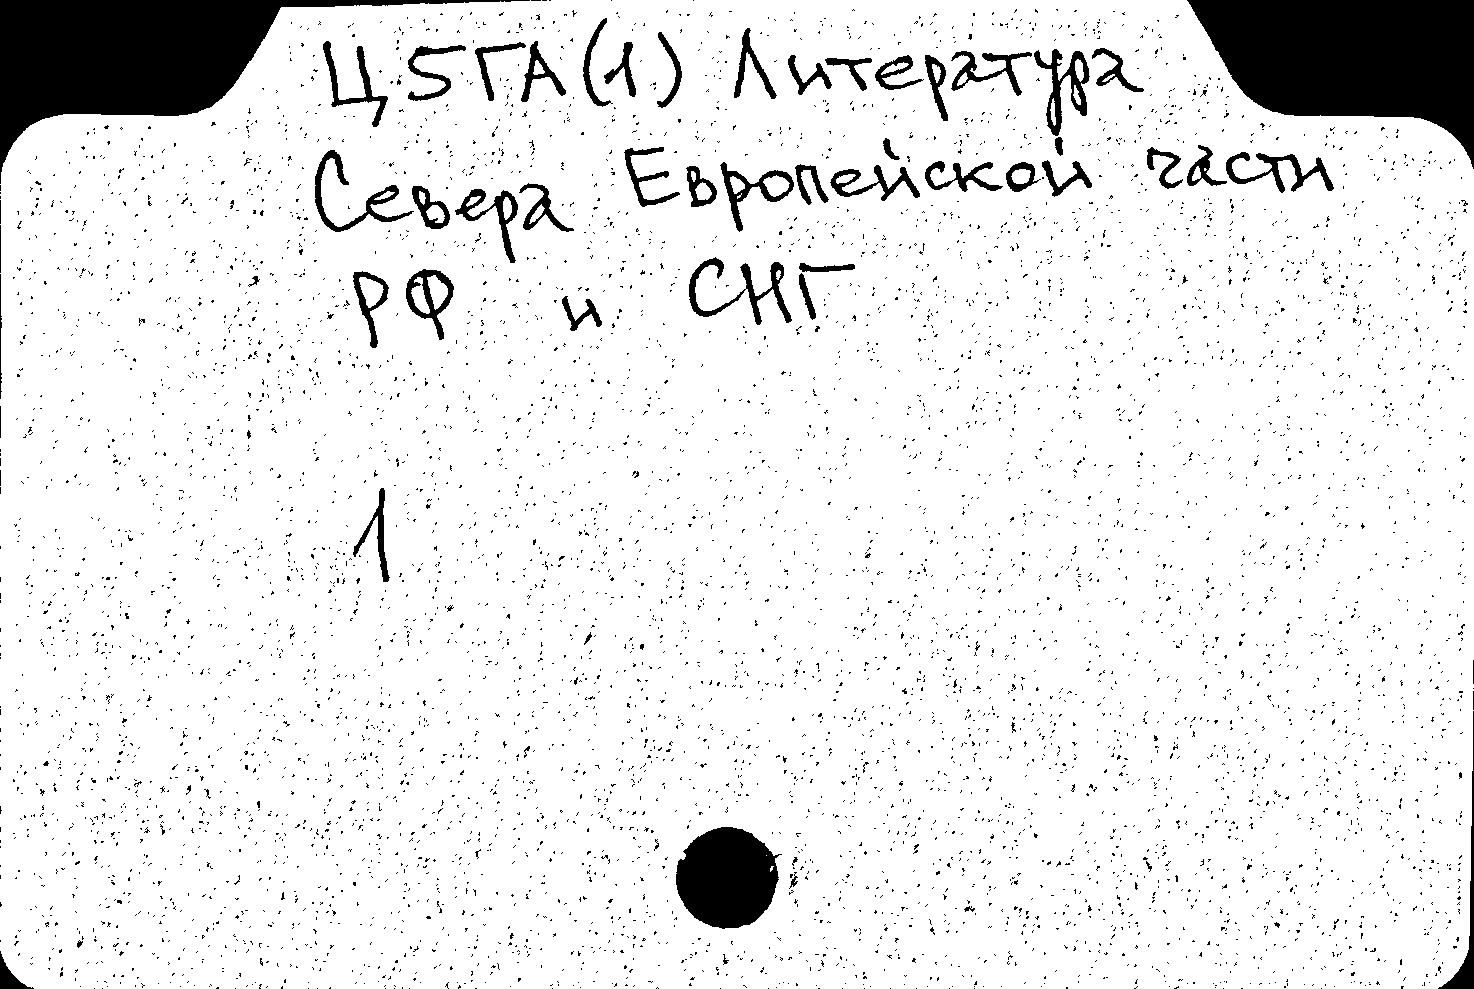 Ц5ГА(1) Литература
Севера Европейской части
РФ и СНГ
1